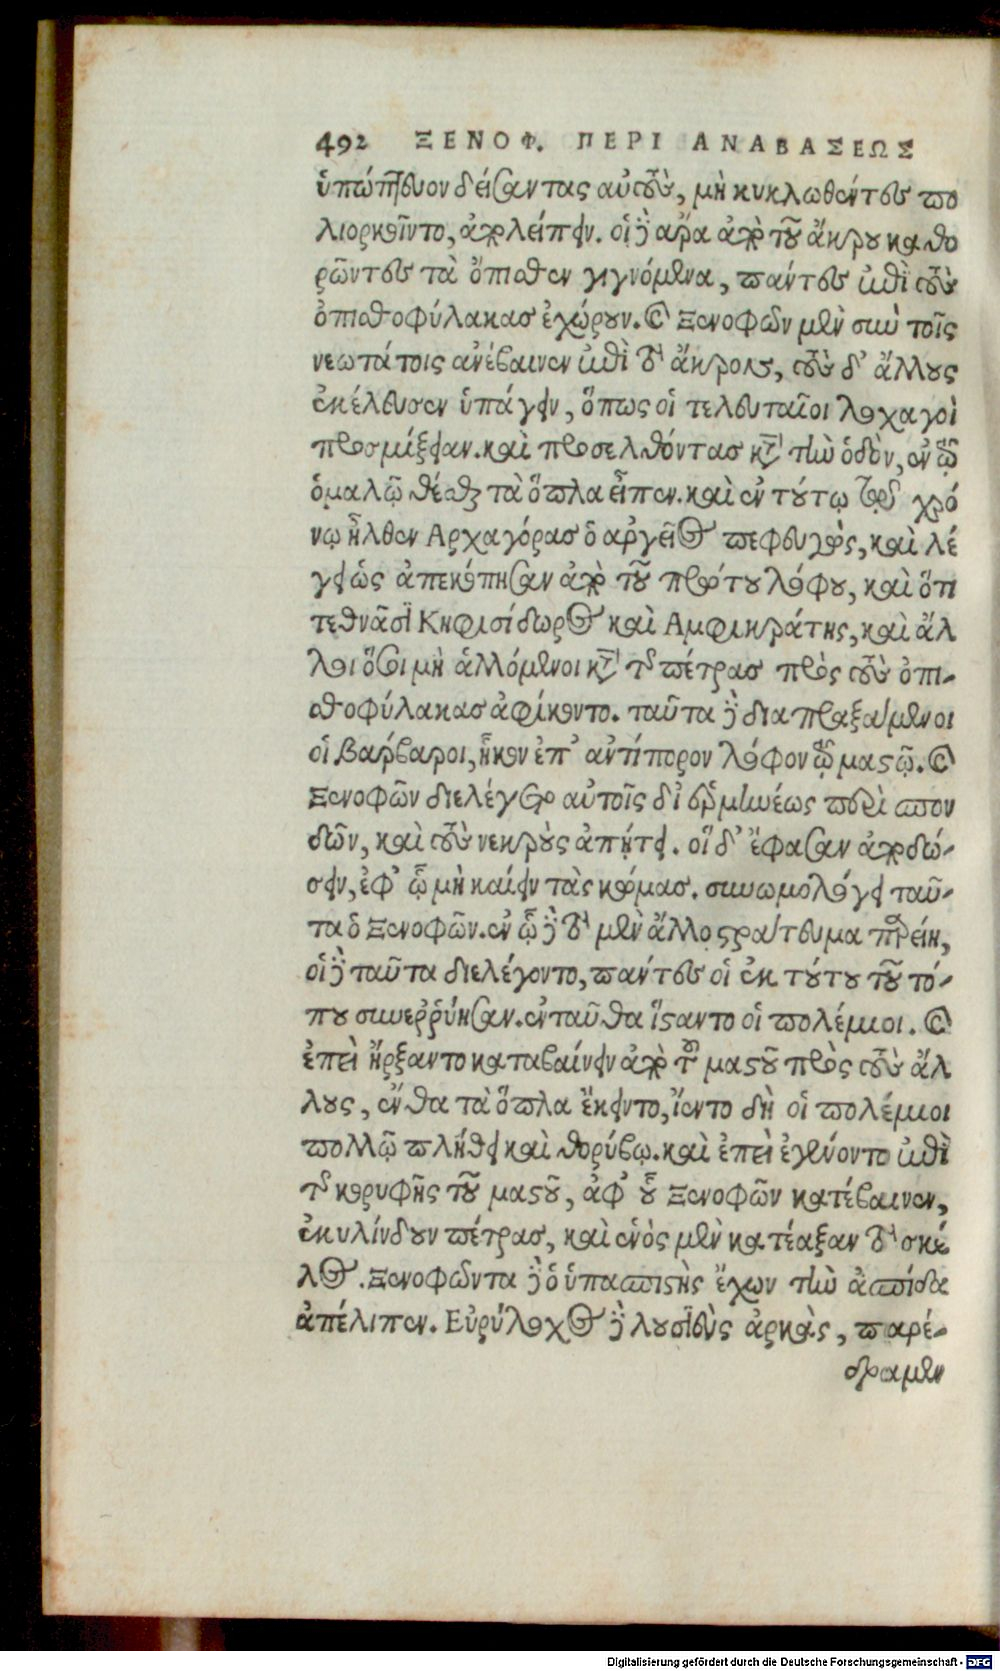 492 ΞΕΝΟΦ. ΠΕΡΙ ΑΝΑΒΑΣΕΩΣ
ὑπώπτευον δείσαντας αὐτοὺς, μὴ κυκλωθέντες πο
λιορκοῖντο, ἀπολείπειν. οἱ δὲ ἄρα ἀπὸ τοῦ ἄκρου καθο
ρῶντες τὰ ὄπισθεν γιγνόμενα, πάντες ἐπὶ τοὺς
ὀπισθοφύλακας ἐχώρουν. καὶ Ξενοφῶν μὲν σὺν τοῖς
νεωτάτοις ἀνέβαινεν ἐπὶ τὸ ἄκρον, τοὺς δ' ἄλλους
ἐκέλευσεν ὑπάγειν, ὅπως οἱ τελευταῖοι λοχαγοὶ
προσμίξειαν. καὶ προσελθόντας κατὰ τὴν ὁδὸν, ἐν τῷ
ὁμαλῷ θέσθαι τὰ ὅπλα εἶπεν. καὶ ἐν τούτῳ τῷ χρό
νῳ ἦλθεν Αρχαγόρας ὁ ἀργεῖος πεφευγὼς, καὶ λέ
γει ὡς ἀπεκόπησαν ἀπὸ τοῦ πρώτου λόφου, καὶ ὅτι
τεθνᾶσι Κηφισίδωρος καὶ Αμφικράτης, καὶ ἄλ
λοι ὅσοι μὴ ἁλλόμενοι κατὰ τῆς πέτρας πρὸς τοὺς ὀπι-
σθοφύλακας ἀφίκοντο. ταῦτα δὲ διαπραξάμενοι
οἱ βάρβαροι, ἧκον ἐπ' ἀντίπορον λόφον τῷ μαστῷ. καὶ
Ξενοφῶν διελέγετο αὐτοῖς δι' ἑρμηνέως περὶ σπον
δῶν, καὶ τοὺς νεκροὺς ἀπῄτει. οἵ δ' ἔφασαν ἀποδώ-
σειν, ἐφ' ᾧ μὴ καίειν τὰς κώμας. συνωμολόγει ταῦ-
τα ὁ Ξενοφῶν. ἐν ᾧ δὲ τὸ μὲν ἄλλο στράτευμα παρείη,
οἱ δὲ ταῦτα διελέγοντο, πάντες οἱ ἐκ τούτου τοῦ τό-
που συνερρύησαν. ἐνταῦθα ἵσταντο οἱ πολέμιοι. καὶ
ἐπεὶ ἤρξαντο καταβαίνειν ἀπὸ τοῦ μαστοῦ πρὸς τοὺς ἄλ
λους, ἔνθα τὰ ὅπλα ἔκειντο, ἵεντο δὴ οἱ πολέμιοι
πολλῷ πλήθει καὶ θορύβῳ. καὶ ἐπεὶ ἐγένοντο ἐπὶ
τῆς κορυφῆς τοῦ μαστοῦ, ἀφ' οὗ Ξενοφῶν κατέβαινεν,
ἐκυλίνδουν πέτρας, καὶ ἑνὸς μὲν κατέαξαν τὸ σκέ
λος. Ξενοφῶντα δὲ ὁ ὑπασπιστὴς ἔχων τὴν ἀσπίδα
ἀπέλιπεν. Εὐρύλοχος δὲ λουσιεὺς ἀρκὰς, παρέ-
δραμεν
Digitalisierung gefördert durch die Deutsche Forschungsgemeinschaft - DFG